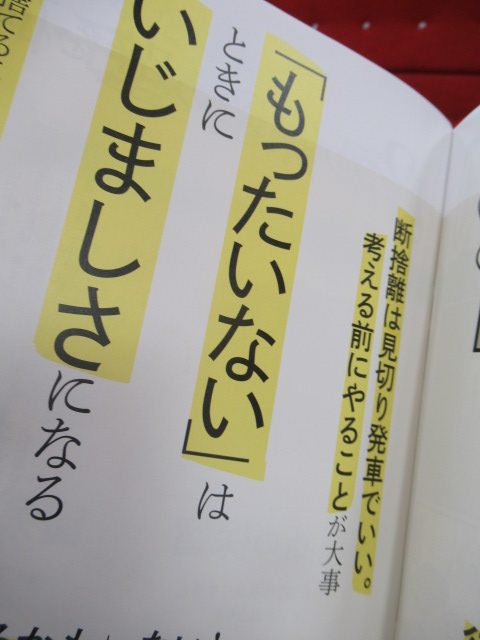 断捨離は見切り発車でいい。
考える前にやることが大事
「もったいない」は
ときに
いじましさになる